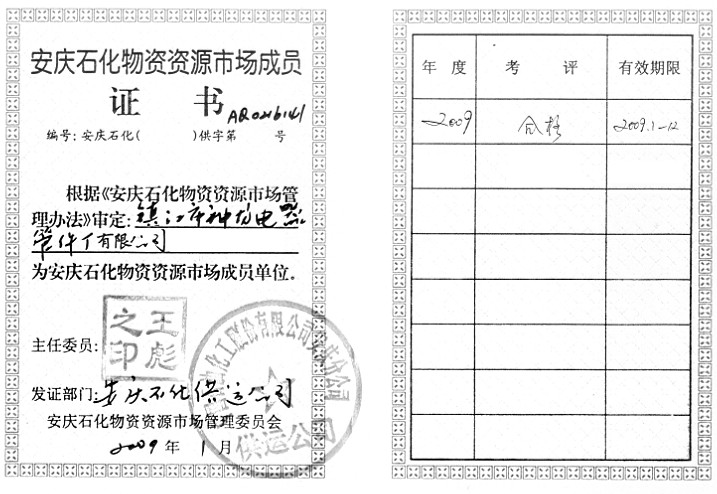 安庆石化物资资源市场成员
证 书
AQ0216141
编号：安庆石化( )供字第 号
根据《安庆石化物资资源市场管
理办法》审定：镇江市神扬电器
管件厂有限公司
为安庆石化物资资源市场成员单位。
主任委员：
王彪
之印
发证部门：安庆石化供运公司
安庆石化物资资源市场管理委员会
2009 年 1 月
供运公司
年 度 考 评 有效期限
2009 合格 2009.1-12